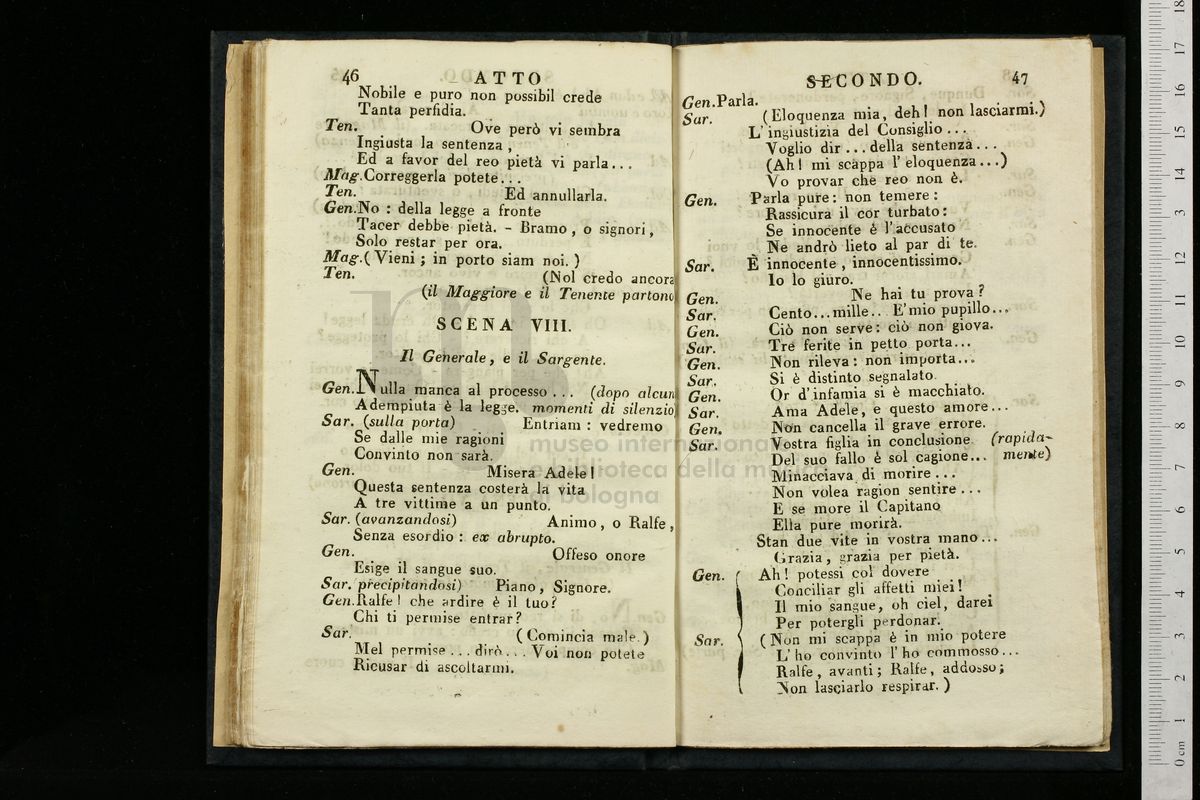 46 ATTO
Nobile e puro non possibil crede
Tanta perfidia.
Ten. Ove però vi sembra
Ingiusta la sentenza,
Ed a favor del reo pietà vi parla...
Mag. Correggerla potete...
Ten. Ed annullarla.
Gen. No: della legge a fronte
Tacer debbe pietà. - Bramo, o signori,
Solo restar per ora.
Mag. (Vieni; in porto siam noi.)
Ten. (Nol credo ancora
(il Maggiore e il Tenente partono
SCENA VIII.
Il Generale, e il Sargente.
Gen. Nulla manca al processo... (dopo alcun
Adempiuta è la legge. momenti di silenzio
Sar. (sulla porta) Entriam: vedremo
Se dalle mie ragioni
Convinto non sarà.
Gen. Misera Adele!
Questa sentenza costerà la vita
A tre vittime a un punto.
Sar. (avanzandosi) Animo, o Ralfe,
Senza esordio: ex abrupto.
Gen. Offeso onore
Esige il sangue suo.
Sar. precipitandosi) Piano, Signore.
Gen. Ralfe! che ardire è il tuo?
Chi ti permise entrar?
Sar. (Comincia male.)
Mel permise... dirò... Voi non potete
Ricusar di ascoltarmi.
SECONDO. 47
Gen. Parla.
Sar. (Eloquenza mia, deh! non lasciarmi.)
L'ingiustizia del Consiglio...
Voglio dir... della sentenza...
(Ah! mi scappa l'eloquenza...)
Vo provar che reo non è.
Gen. Parla pure: non temere:
Rassicura il cor turbato:
Se innocente è l'accusato
Ne andrò lieto al par di te.
Sar. È innocente, innocentissimo.
Io lo giuro.
Gen. Ne hai tu prova?
Sar. Cento... mille.. E' mio pupillo...
Gen. Ciò non serve: ciò non giova.
Sar. Tre ferite in petto porta...
Gen. Non rileva: non importa...
Sar. Si è distinto segnalato.
Gen. Or d'infamia si è macchiato.
Sar. Ama Adele, e questo amore...
Gen. Non cancella il grave errore.
Sar. Vostra figlia in conclusione (rapida-
Del suo fallo è sol cagione... mente)
Minacciava di morire...
Non volea ragion sentire...
E se more il Capitano
Ella pure morirà.
Stan due vite in vostra mano...
Grazia, grazia per pietà.
Gen. Ah! potessi col dovere
Conciliar gli affetti miei!
Il mio sangue, oh ciel, darei
Per potergli perdonar.
Sar. (Non mi scappa è in mio potere
L'ho convinto l'ho commosso...
Ralfe, avanti; Ralfe, addosso;
Non lasciarlo respirar.)
museo internazionale
e biblioteca della musica
di bologna
0 cm 1 2 3 4 5 6 7 8 9 10 11 12 13 14 15 16 17 18